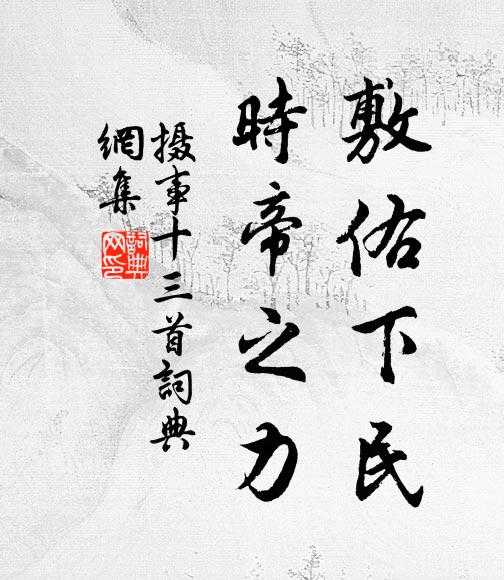 敷佑下民
時帝之力
摄事十三首詞典
網集
詞典网印